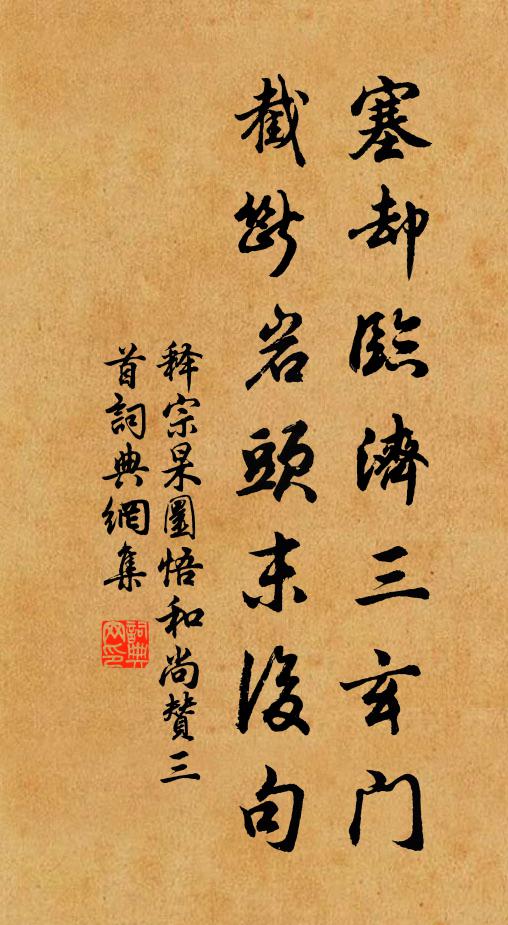 塞却臨濟三玄門
截斷岩頭末後句
释宗杲圜悟和尚贊三
首詞典網集